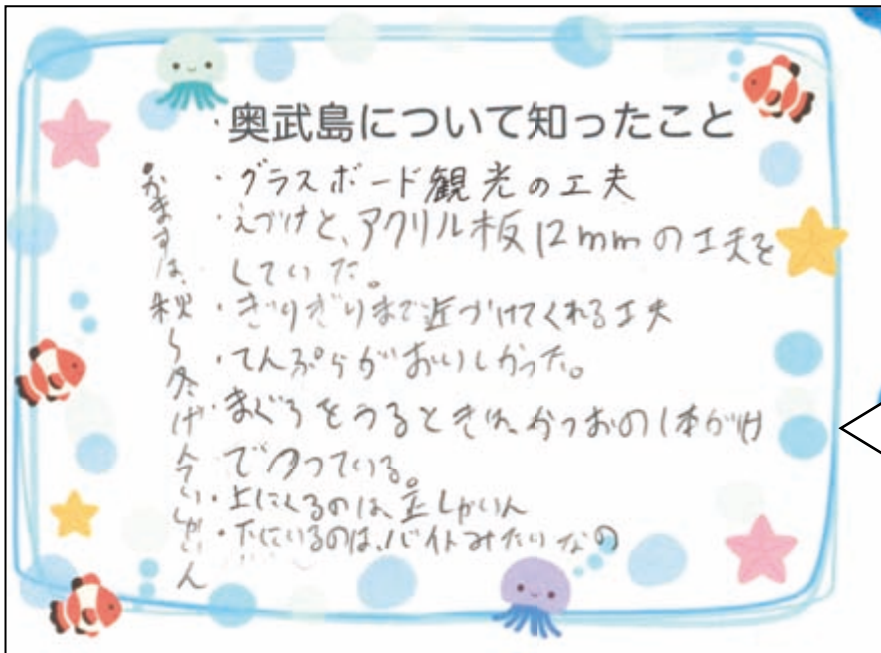 ・奥武島について知ったこと
・グラスボード観光の工夫
・えづけと、アクリル板12mmの工夫を
していた。
・ぎりぎりまで近づけてくれる工夫
・てんぷらがおいしかった。
・まぐろをうるときは、かつおの1本がけ
でつっている。
・上にくるのは、正しゃいん
・下にいるのは、バイトみたいなの
・かますは、秋から冬